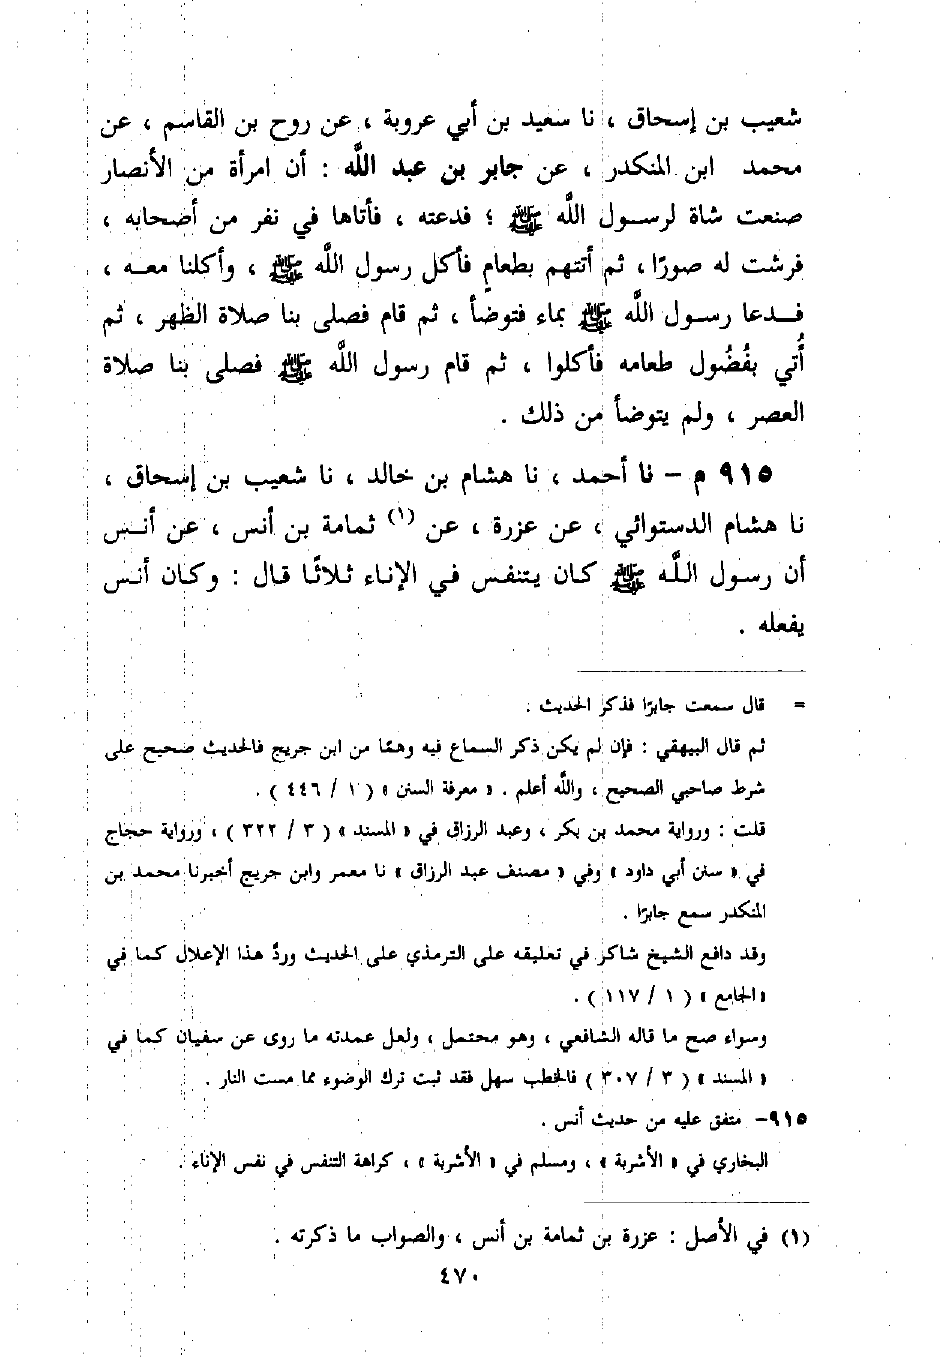 شعيب بن إسحاق ، نا سعيد بن أبي عروبة ، عن روح بن القاسم ، عن
محمد ابن المنكدر ، عن جابر بن عبد اللَّه : أن امرأة من الأنصار
صنعت شاة لرسول اللَّه ﷺ ؛ فدعته ، فأتاها في نفر من أضحابه ،
فرشت له صورًا ، ثم أتتهم بطعامٍ فأكل رسول اللَّه ﷺ ، وأكلنا معه ،
فدعا رسول اللَّه ﷺ بماء فتوضأ ، ثم قام فصلى بنا صلاة الظهر ، ثم
أُتي بفُضُول طعامه فأكلوا ، ثم قام رسول اللَّه ﷺ فصلى بنا صلاة
العصر ، ولم يتوضأ من ذلك .
٩١٥ م – نا أحمد ، نا هشام بن خالد ، نا شعيب بن إسحاق ،
نا هشام الدستوائي ، عن عزرة ، عن (١) ثمامة بن أنس ، عن أنس
أن رسول اللَّه ﷺ كان يتنفس في الإناء ثلاثًا قال : وكان أنس
يفعله .
= قال سمعت جابرًا فذكر الحديث .
ثم قال البيهقي : فإن لم يكن ذكر السماع فيه وهمًا من ابن جريج فالحديث صحيح على
شرط صاحبي الصحيح ، واللَّه أعلم . « معرفة السنن » ( ١ / ٤٤٦ ) .
قلت : ورواية محمد بن بكر ، وعبد الرزاق في « المسند » ( ٣ / ٣٢٢ ) ، ورواية حجاج
في « سنن أبي داود » وفي « مصنف عبد الرزاق » نا معمر وابن جريج أخبرنا محمد بن
المنكدر سمع جابرًا .
وقد دافع الشيخ شاكر في تعليقه على الترمذي على الحديث وردَّ هذا الإعلال كما في
« الجامع » ( ١ / ١١٧ ) .
وسواء صح ما قاله الشافعي ، وهو محتمل ، ولعل عمدته ما روى عن سفيان كما في
« المسند » ( ٣ / ٣٠٧ ) فالخطب سهل فقد ثبت ترك الوضوء مما مست النار .
٩١٥– متفق عليه من حديث أنس .
البخاري في « الأشربة » ، ومسلم في « الأشربة » ، كراهة التنفس في نفس الإناء .
(١) في الأصل : عزرة بن ثمامة بن أنس ، والصواب ما ذكرته .
٤٧٠